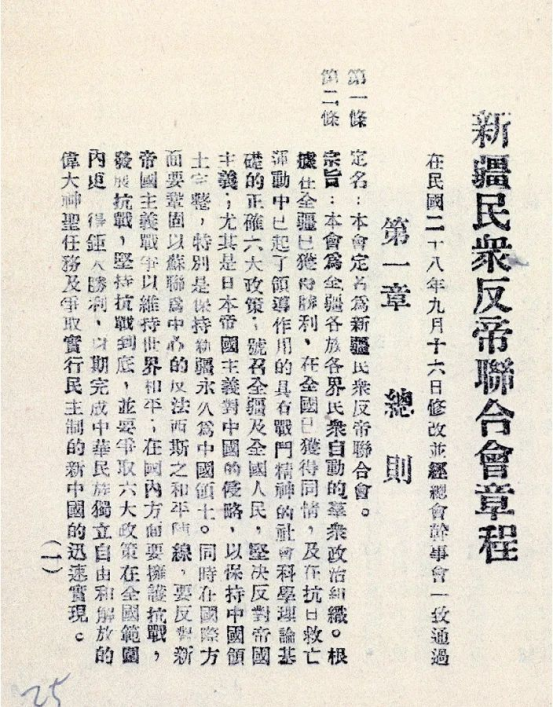 新疆民衆反帝聯合會章程
在民國二十八年九月十六日修改並經總會幹事會一致通過
第一章 總則
第一條 定名：本會定名為新疆民衆反帝聯合會。
第二條 宗旨：本會為全疆各族各界民衆自動的羣衆政治組織。根
據在全疆已獲得勝利，在全國已獲得同情，及在抗日救亡
運動中已起了領導作用的具有戰鬥精神的社會科學理論基
礎的正確六大政策，號召全疆及全國人民，堅決反對帝國
主義；尤其是日本帝國主義對中國的侵略，以保持中國領
土完整，特別是保持新疆永久為中國領土。同時在國際方
面要鞏固以蘇聯為中心的反法西斯之和平陣線，要反對新
帝國主義戰爭以維持世界和平；在國內方面要擁護抗戰，
發展抗戰，堅持抗戰到底，並要爭取六大政策在全國範圍
內更 得鉅大勝利，以期完成中華民族獨立自由和解放的
偉大神聖任務及爭取實行民主制的新中國的迅速實現。
（一）
25